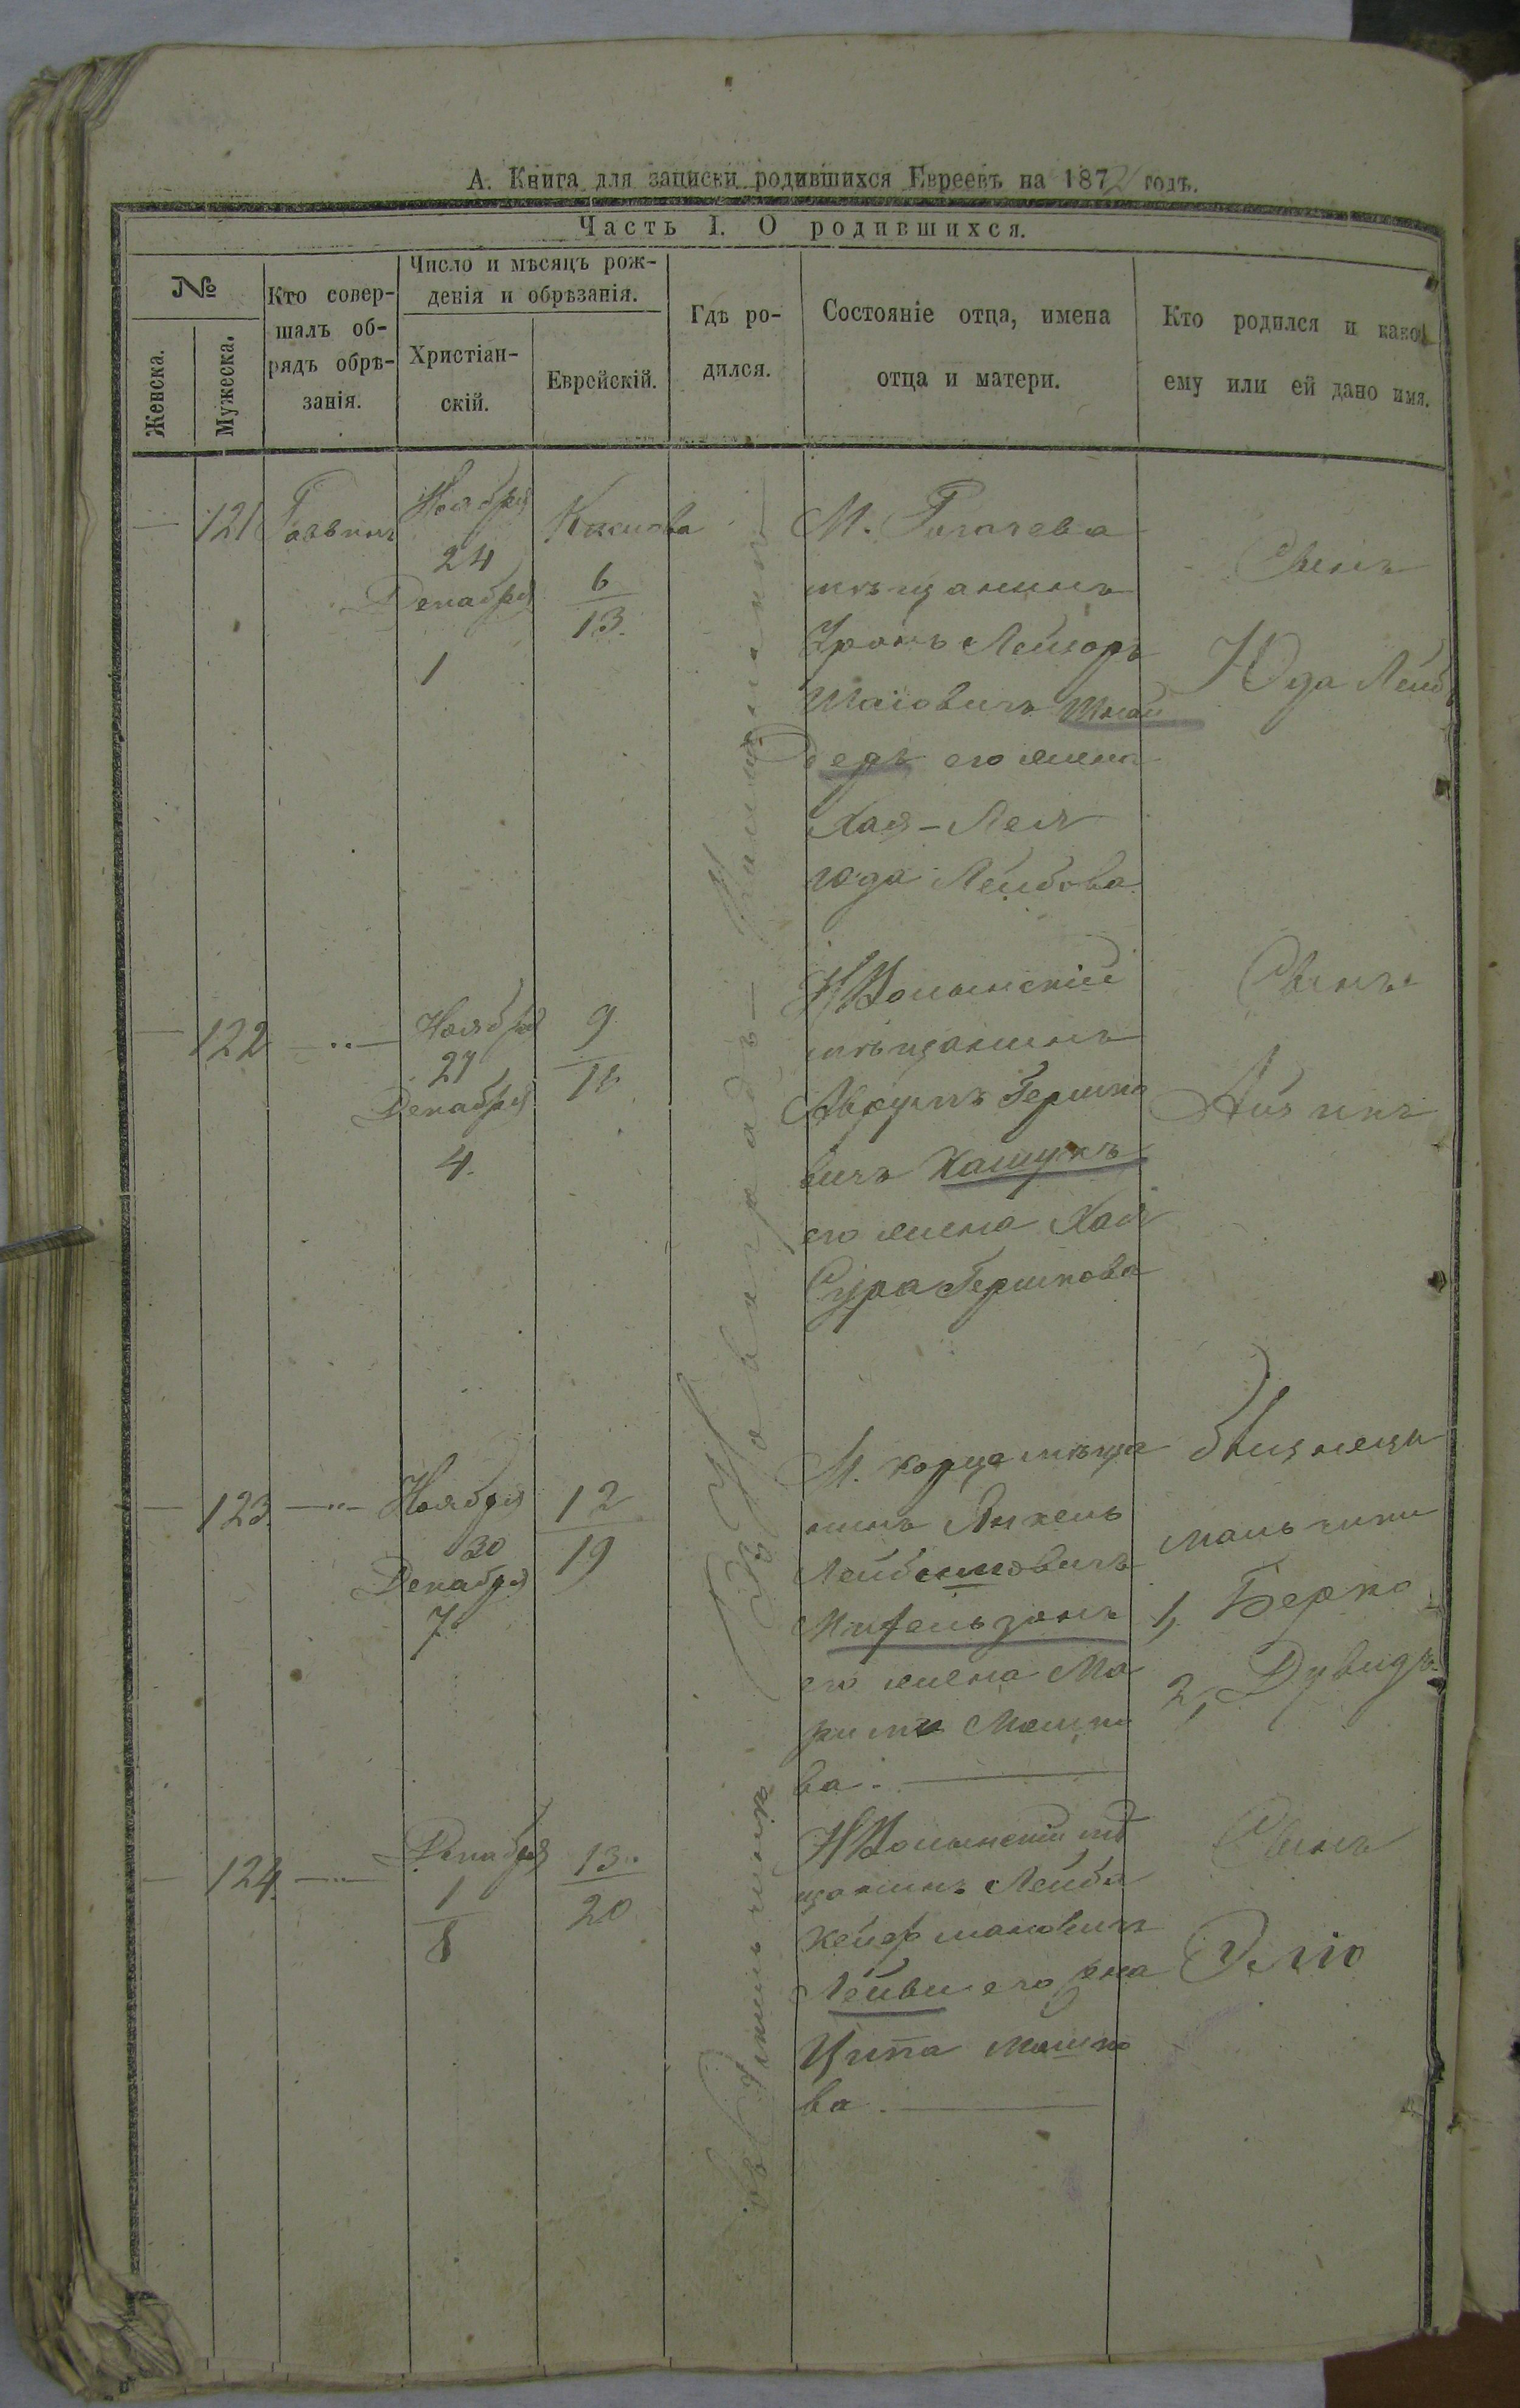 А. Книга для записки родившихся Евреевъ на 1872 годъ.
Часть I. О родившихся.
№
Женска.
Мужеска.
Кто совер-
шалъ об-
рядъ обрѣ-
занія.
Число и мѣсяцъ рож-
денія и обрѣзанія.
Христіан-
скій.
Еврейскій.
Гдѣ ро-
дился.
Состояніе отца, имена
отца и матери.
Кто родился и какое
ему или ей дано имя.
121
Ноября
24
Декабря
1
Кислова
6
13.
М. Рогачева
мѣщанинъ
Лейзоръ
Шаіовичъ Шнай
деръ его жена
Хая-Лея
Юда Лейбова
Сынъ
Юда Лейб
122
Ноября
27
Декабря
4.
9
16
НВолынскій
мѣщанинъ
Аврумъ Гершко
вичъ Кашукъ
его жена Хая
Сура Гершкова
Сынъ
Айзикъ
123.
Ноября
30
Декабря
7.
12
19
М. Корца мѣща
нинъ Янкель
Лейбишовичъ
его жена Ма
Мошко
ва.
Близнецы
мальчики
1, Берко
2, Дувидъ
124.
Декабря
1
8
13.
20
НВолынскій мѣ
щанинъ Лейба
Лейви его жна
Ципа Мошко
ва.
Сынъ